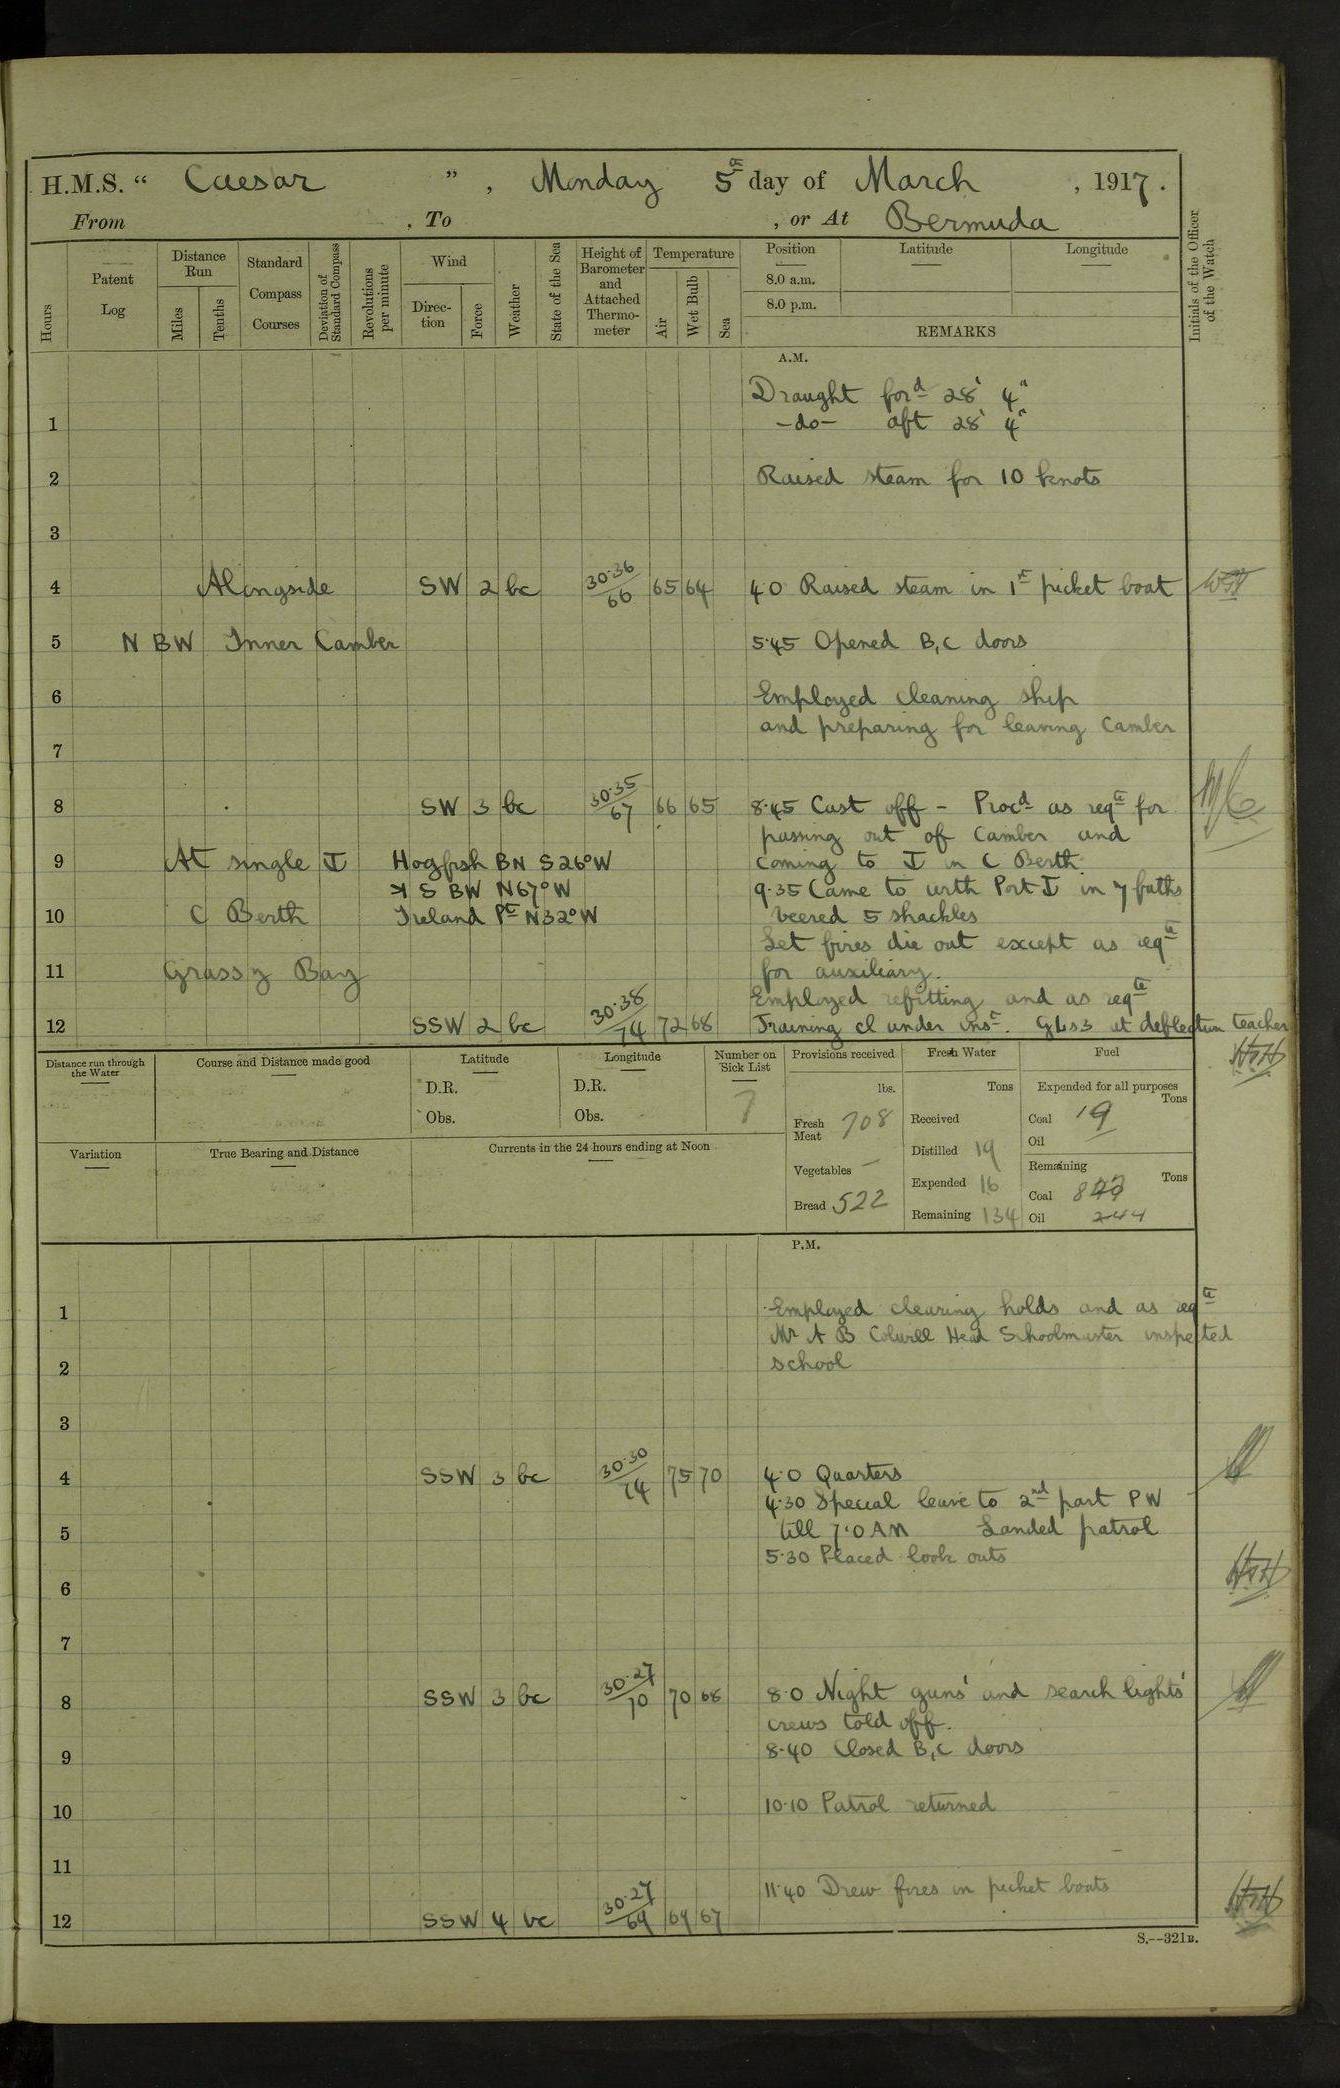 H.M.S. " Caesar " , Monday 5th day of March , 1917.
From , To , or At Bermuda
Hours
Patent Log
Distance Run
Miles
Tenths
Standard Compass Courses
Deviation of Standard Compass
Revolutions per minute
Wind
Direction
Force
Weather
State of the Sea
Height of Barometer and Attached Thermometer
Temperature
Air
Wet Bulb
Sea
Position
Latitude
Longitude
8.0 a.m.
8.0 p.m.
REMARKS
Initials of the Officer of the Watch
A.M.
Draught ford 28' 4"
1 -do- aft 28' 4"
2 Raised steam for 10 knots
3
4 Alongside SW 2 bc 30.36/66 65 64 4.0 Raised steam in 1st picket boat
5 N BW Inner Camber 5.45 Opened B,C doors
6 Employed cleaning ship
and preparing for leaving Camber
7
8 SW 3 bc 30.35/67 66 65 8.45 Cast off - Procd as reqte for
passing out of Camber and
9 At single Hogfish BN S26°W coming to in C Berth
S BW N67°W 9.35 Came to with Port in 7 faths
10 C Berth Ireland Pt N32°W veered 5 shackles
Let fires die out except as reqte
11 Grassy Bay for auxiliary.
Employed refitting and as reqte
12 SSW 2 bc 30.38/74 72 68 Training cl under inst. GLs3 at deflection teacher
Distance run through the Water
Course and Distance made good
Latitude
D.R.
Obs.
Longitude
D.R.
Obs.
Number on Sick List
7
Variation
True Bearing and Distance
Currents in the 24 hours ending at Noon
Provisions received
lbs.
Fresh Meat 708
Vegetables —
Bread 522
Fresh Water
Tons
Received
Distilled 19
Expended 16
Remaining 134
Fuel
Expended for all purposes
Tons
Coal 19
Oil
Remaining
Tons
Coal
Oil 244
P.M.
1 Employed clearing holds and as reqte
Mr A B Colwill Head Schoolmaster inspected
2 school
3
4 SSW 3 bc 30.30/74 75 70 4.0 Quarters
4.30 Special leave to 2nd part PW
5 till 7.0 AM Landed patrol
5.30 Placed look outs
6
7
8 SSW 3 bc 30.27/70 70 68 8.0 Night guns' and search lights'
crews told off.
9 8.40 Closed B,C doors
10 10.10 Patrol returned
11
11.40 Drew fires in picket boats
12 SSW 4 bc 30.27/69 69 67
S.--321B.